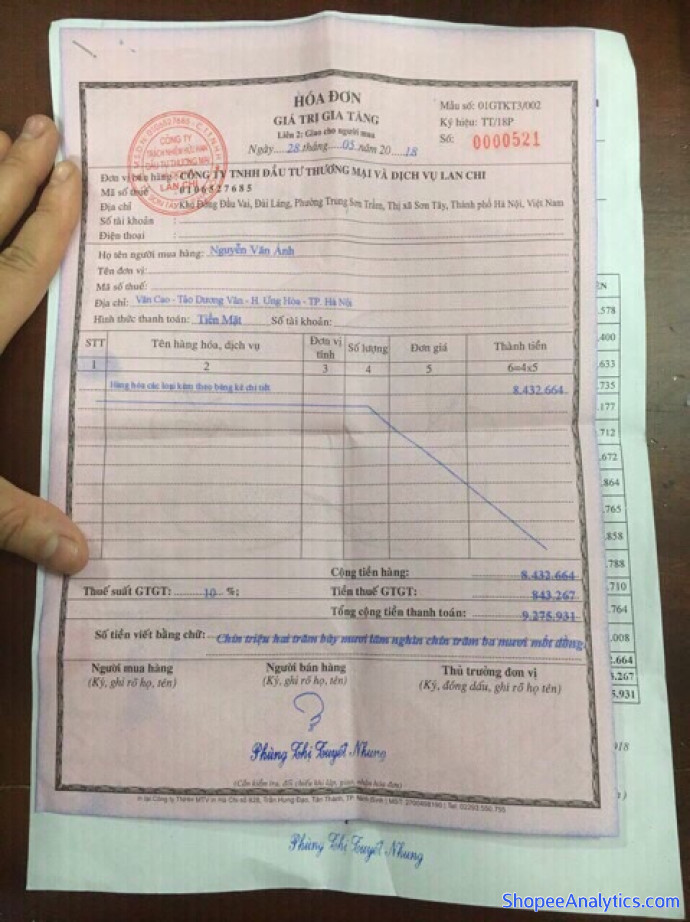 HÓA ĐƠN
GIÁ TRỊ GIA TĂNG
Liên 2: Giao cho người mua
Ngày 28 tháng 05 năm 20 18
Mẫu số: 01GTKT3/002
Ký hiệu: TT/18P
Số: 0000521
CÔNG TY
TRÁCH NHIỆM HỮU HẠN
ĐẦU TƯ THƯƠNG MẠI
LAN CHI
Đơn vị bán hàng: CÔNG TY TNHH ĐẦU TƯ THƯƠNG MẠI VÀ DỊCH VỤ LAN CHI
Mã số thuế 0106527685
Địa chỉ Khu Đồng Đầu Vai, Đái Láng, Phường Trung Sơn Trầm, Thị xã Sơn Tây, Thành phố Hà Nội, Việt Nam
Số tài khoản :
Điện thoại :
Họ tên người mua hàng: Nguyễn Văn Ánh
Tên đơn vị:
Mã số thuế:
Địa chỉ: Văn Cao - Tảo Dương Văn - H. Ứng Hòa - TP. Hà Nội
Hình thức thanh toán: Tiền Mặt Số tài khoản:
STT Tên hàng hóa, dịch vụ Đơn vị tính Số lượng Đơn giá Thành tiền
1 2 3 4 5 6=4x5
Hàng hóa các loại kèm theo bảng kê chi tiết 8.432.664
Cộng tiền hàng: 8.432.664
Thuế suất GTGT: 10 %; Tiền thuế GTGT: 843.267
Tổng cộng tiền thanh toán: 9.275.931
Số tiền viết bằng chữ: Chín triệu hai trăm bảy mươi lăm nghìn chín trăm ba mươi mốt đồng
Người mua hàng Người bán hàng Thủ trưởng đơn vị
(Ký, ghi rõ họ, tên) (Ký, ghi rõ họ, tên) (Ký, đóng dấu, ghi rõ họ, tên)
Phùng Thị Tuyết Nhung
(Cần kiểm tra, đối chiếu khi lập, giao, nhận hóa đơn)
Phùng Thị Tuyết Nhung
.578
.400
.633
.735
.177
.712
.672
.864
.765
.858
.788
.710
.764
.008
.664
.267
.931
ShopeeAnalytics.com